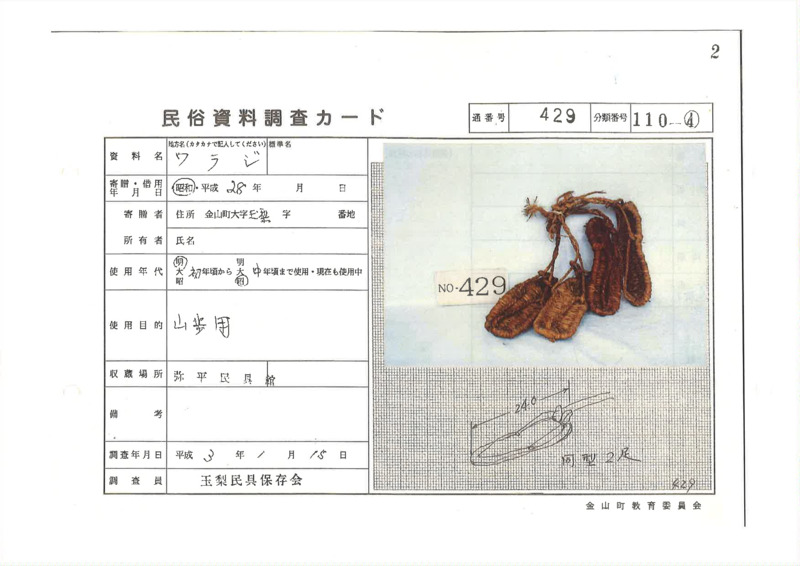 2
民俗資料調査カード
通番号 429 分類番号 110-④
資料名 地方名(カタカナで記入してください) ワラジ 標準名
寄贈・借用年月日 昭和・平成 28年 月 日
寄贈者 住所 金山町大字玉梨字 番地
所有者 氏名
使用年代 明大昭 初年頃から 明大昭 中年頃まで使用・現在も使用中
使用目的 山歩用
収蔵場所 弥平民具館
備考
調査年月日 平成 3年 1月 15日
調査員 玉梨民具保存会
NO-429
24.0
同型2足
429
金山町教育委員会